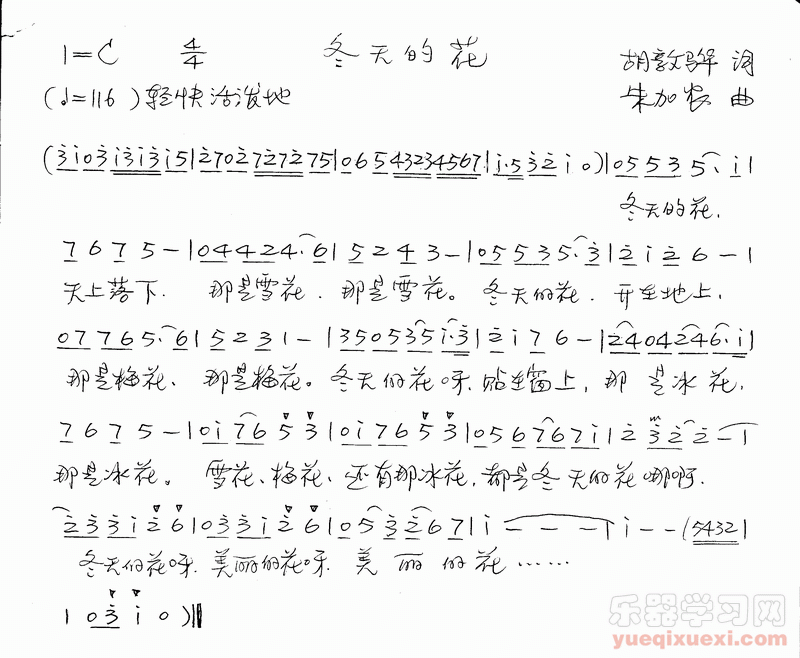 1=C 4/4 冬天的花
胡敦骅 词
(♩=116) 轻快活泼地
朱加农 曲
(3i03i3i3i5|2702727275|06543234567|i·532i0)|05535·i|
冬天的花,
7675-|04424·6|5243-|05535·3|2i26-|
天上落下. 那是雪花, 那是雪花。冬天的花. 开在地上,
07765·6|5231-|350535i·3|2i76-|2404246·i|
那是梅花、那是梅花。冬天的花呀.贴在窗上, 那是冰花,
7675-|0i7653|0i7653|056767i|2322-|
那是冰花。 雪花、梅花、还有那冰花,都是冬天的花哪啊.
233i26|033i26|053267|i---|i--(5432|
冬天的花呀.美丽的花呀.美丽的花……
103i0)‖
乐器学习网
yueqixuexi.com